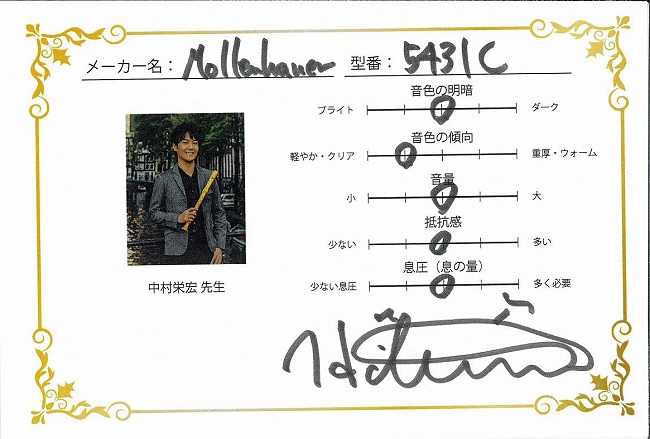 メーカー名： Mollenhauer 型番： 5431C
音色の明暗
ブライト ダーク
音色の傾向
軽やか・クリア 重厚・ウォーム
音量
小 大
抵抗感
少ない 多い
息圧（息の量）
少ない息圧 多く必要
中村栄宏 先生